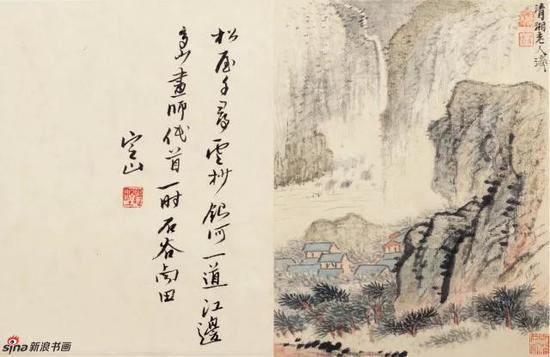 清湘老人濟
松屋千尋雲杪銀河一道江邊
畫師代首一时石谷南田
定山
sina新浪书画